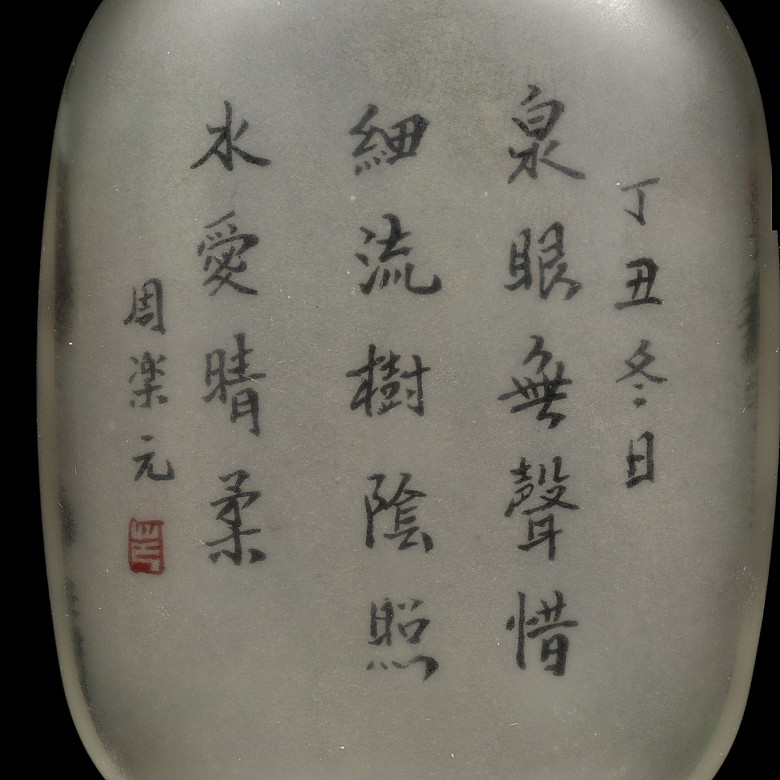 丁丑冬日
泉眼無聲惜
細流樹陰照
水愛晴柔
周楽元